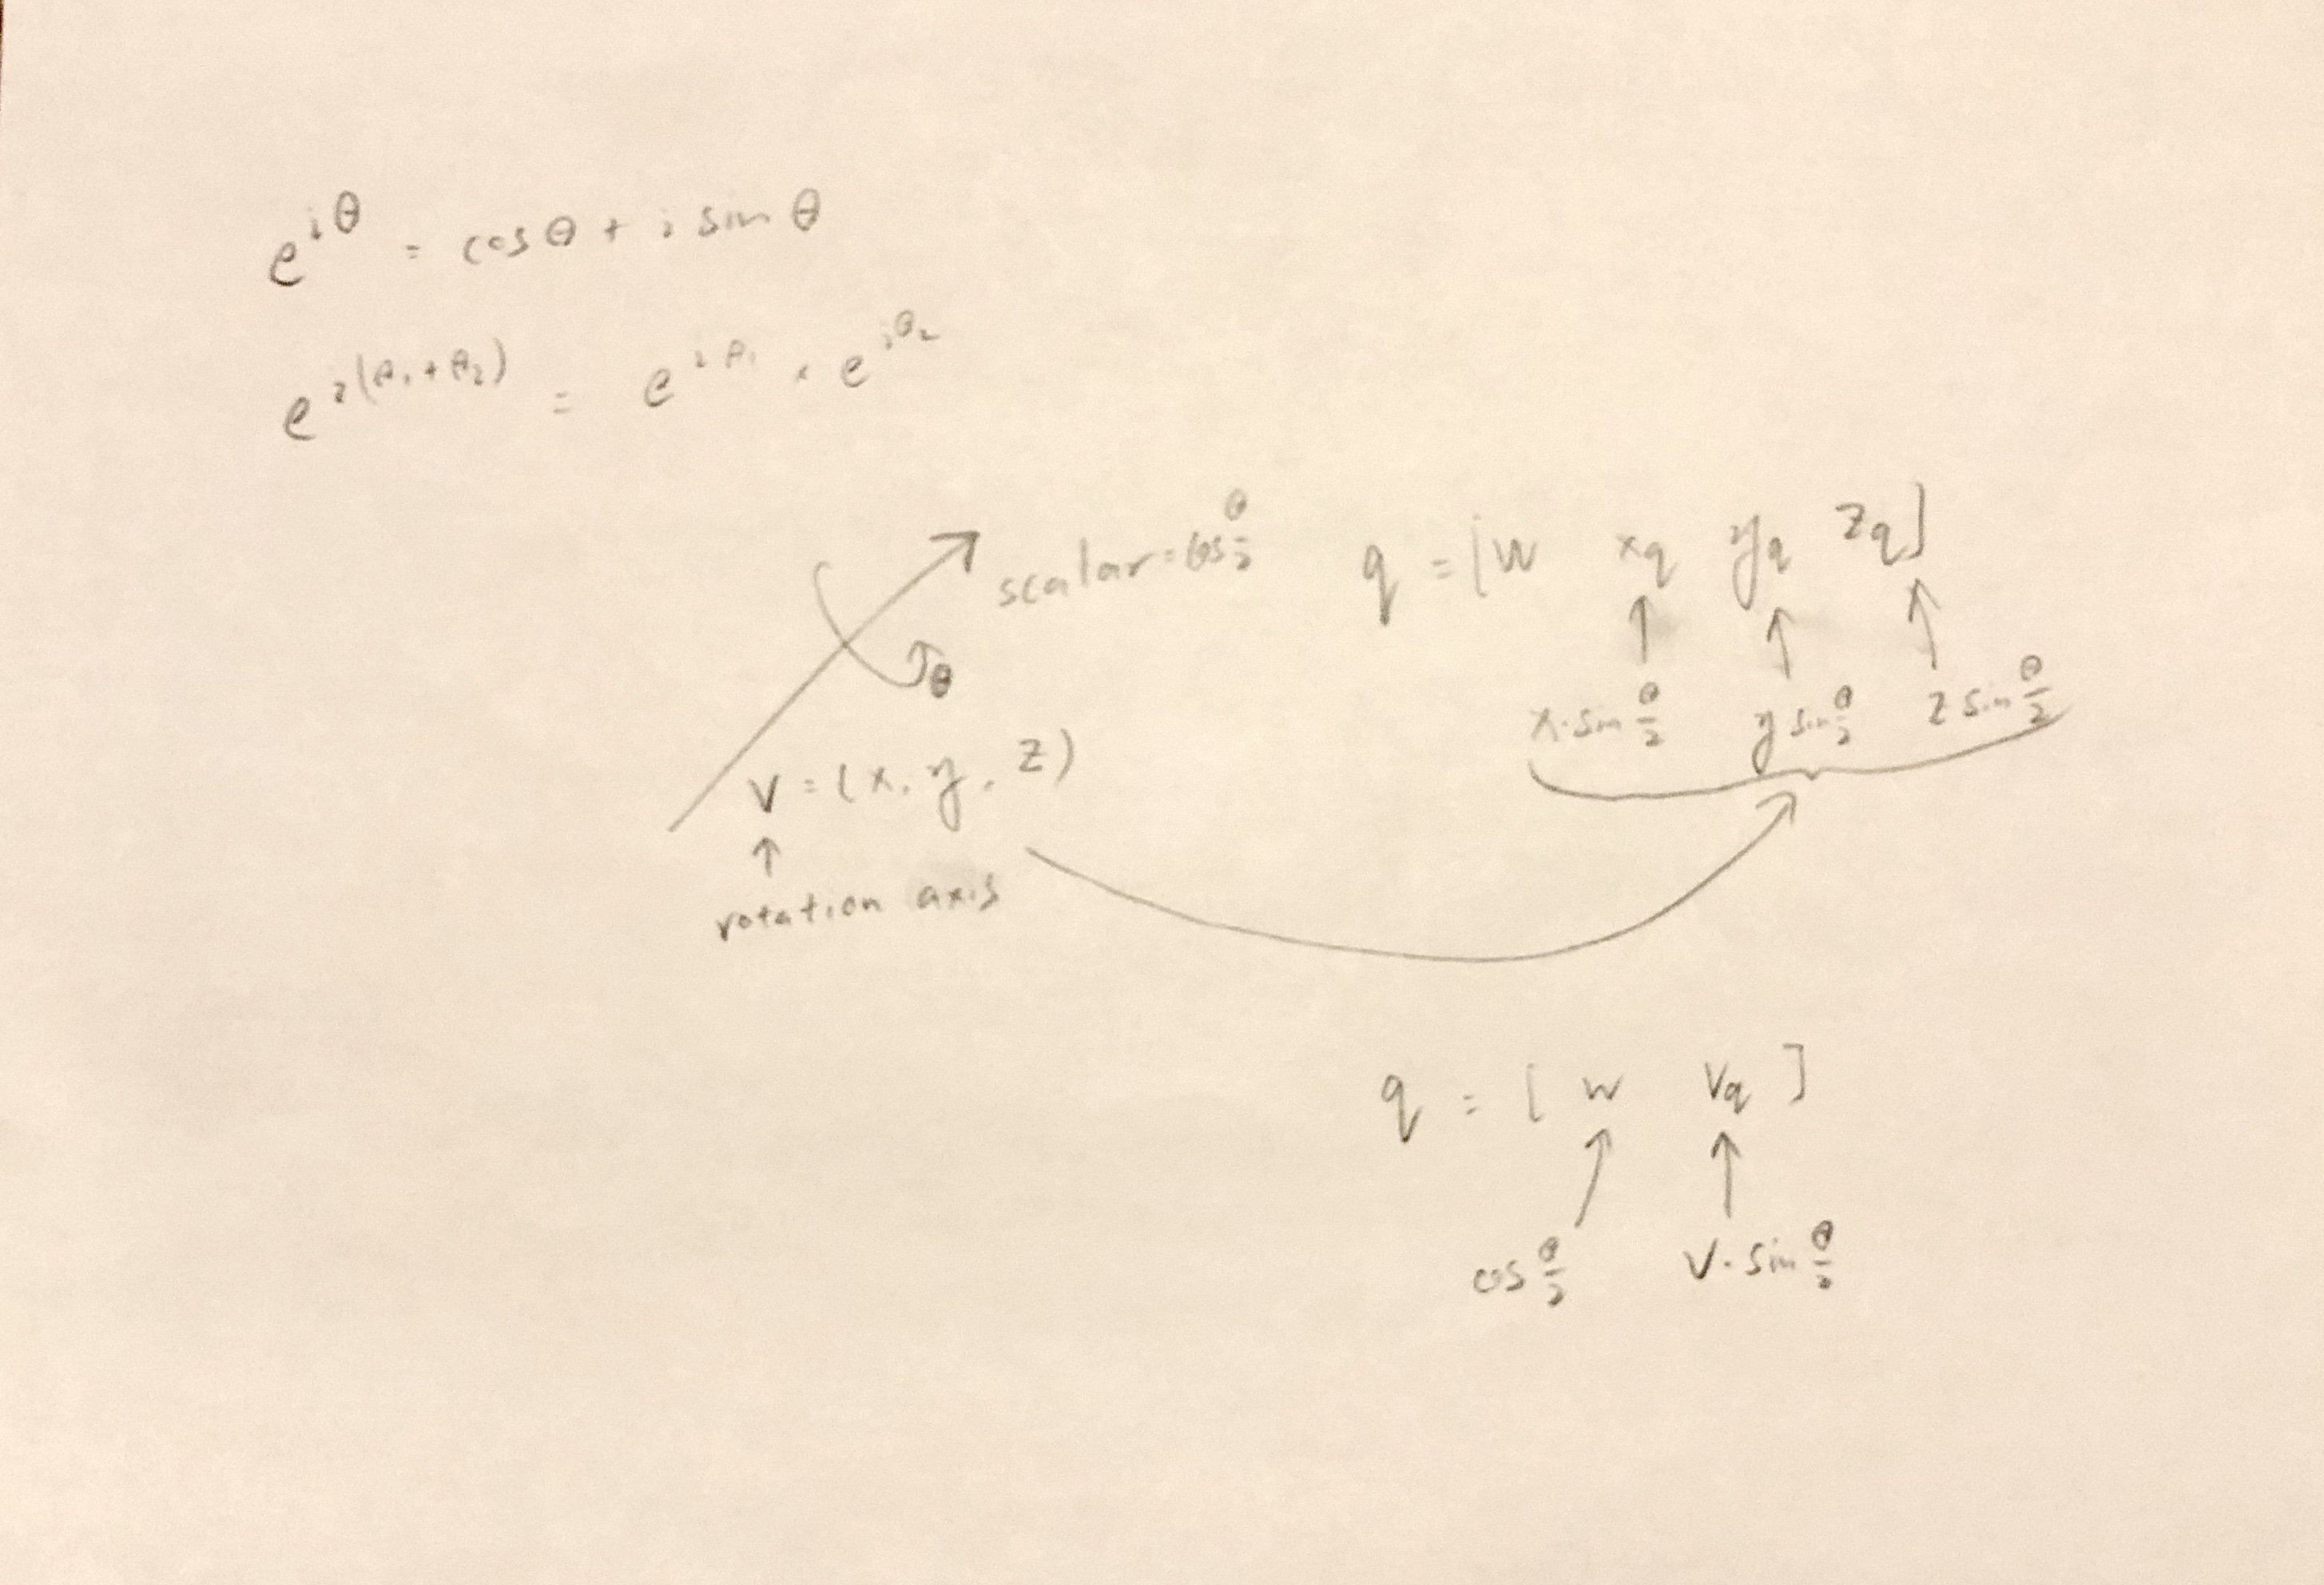 e^{iθ} = cosθ + i sin θ
e^{i(θ₁+θ₂)} = e^{iθ₁} · e^{iθ₂}
scalar = cos θ/2
θ
v = (x, y, z)
↑
rotation axis
q = [w x_q y_q z_q]
↑ ↑ ↑
x·sin θ/2 y sin θ/2 z sin θ/2
q = [ w v_q ]
↑ ↑
cos θ/2 v· sin θ/2